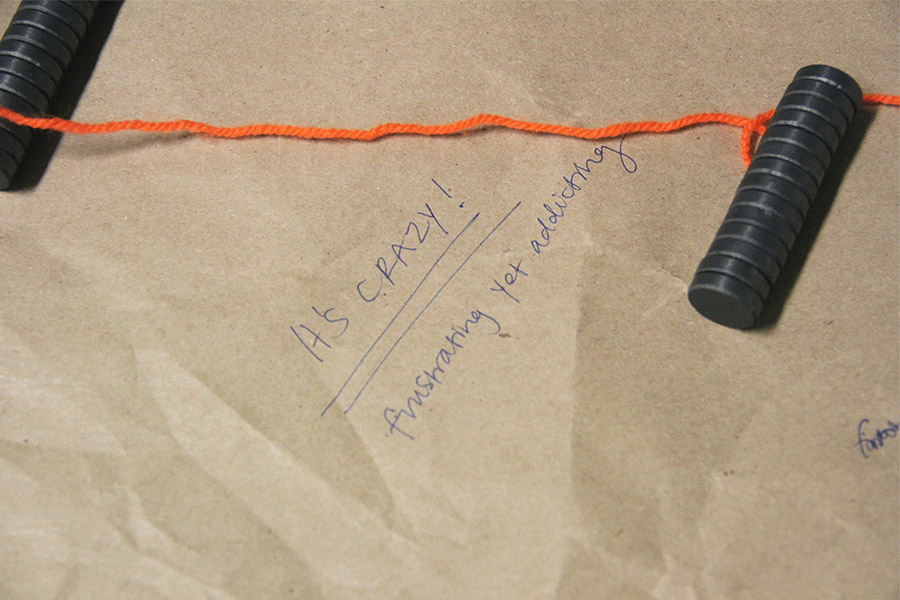 It's CRAZY!
frustrating yet addicting